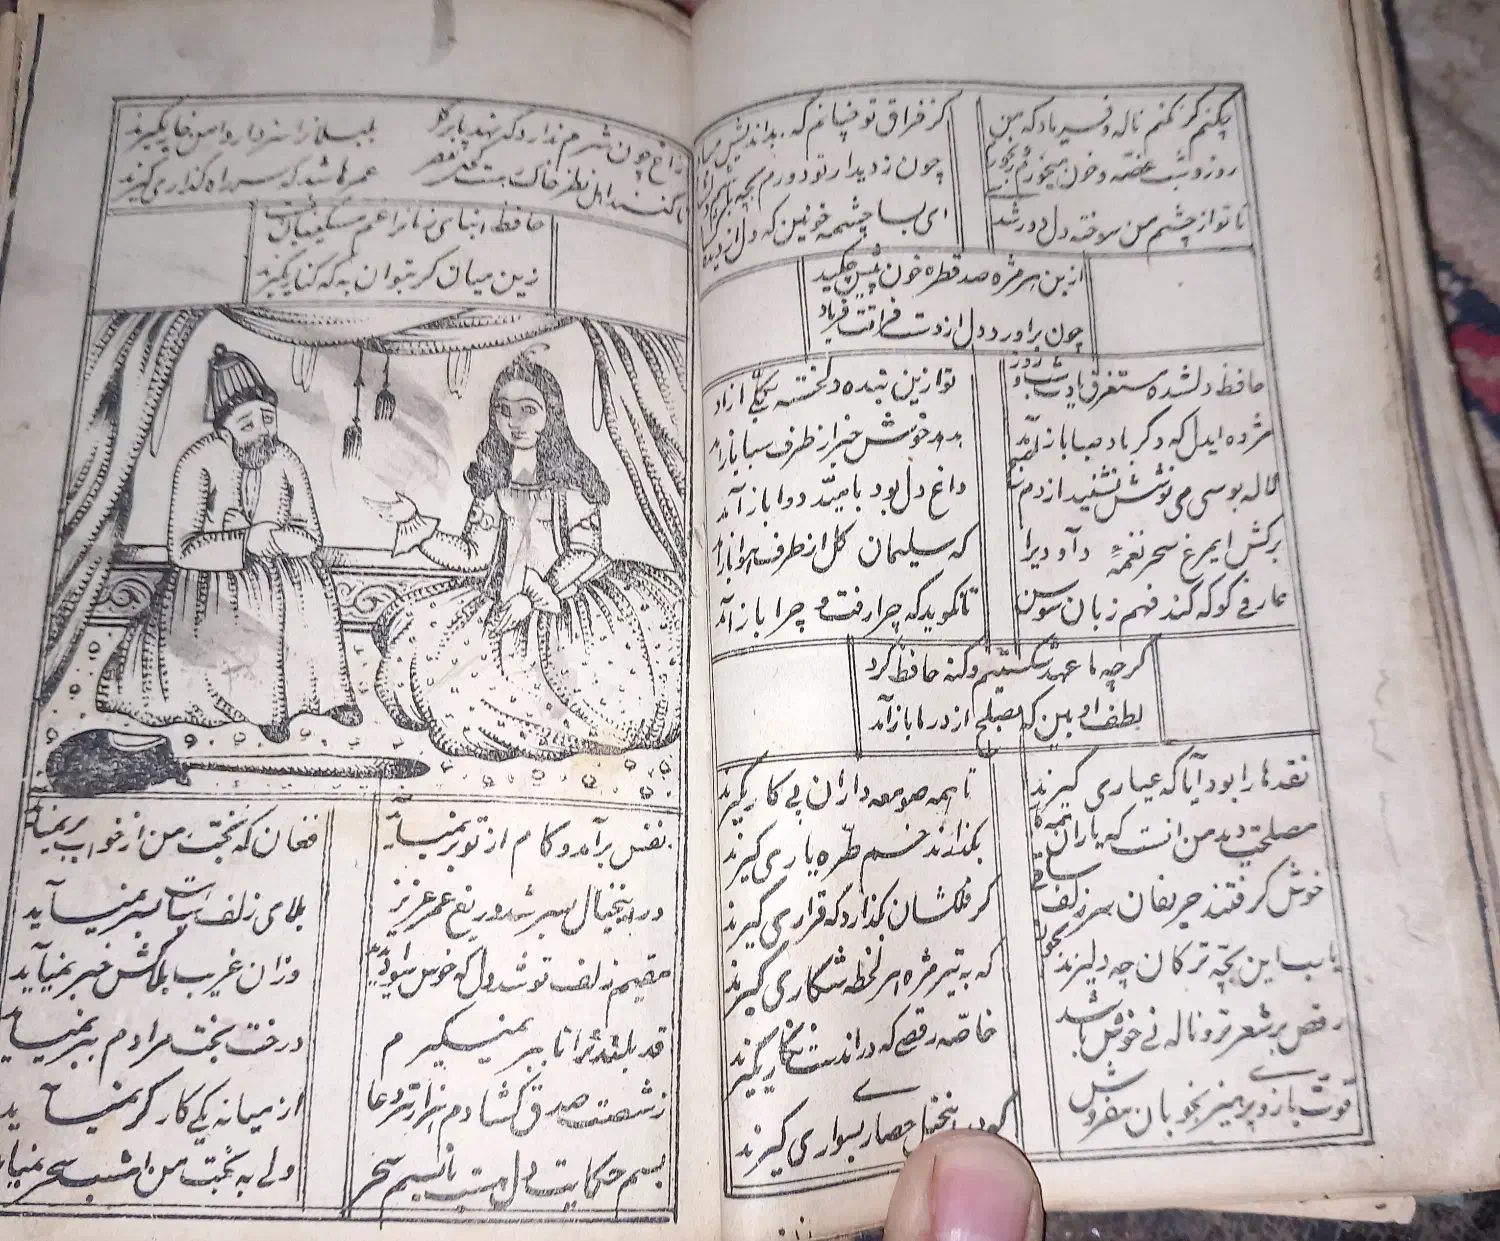 چکنم گر نکنم ناله و فریاد که من کز فراق تو چنانم که بداندیش
روز و شب غصه و خون میخورم چون ز دیدار تو دورم بچه باشم
تا تو از چشم من سوخته دل دور شد ای بسا چشمه خونین که دل از دیده
از بن هر مژه صد قطره خون پیش چکید
چون براورد دل از دست فراقت فریاد
حافظ دلشده مستغرق یادت شب و روز تو ازین بنده دلخسته بکلی ازاد
مژده ایدل که دگر باد صبا باز آمد هدهد خوش خبر از طرف سبا باز آمد
لاله بوی می نوشین بشنید از دم داغ دل بود بامید دوا باز آمد
برکش ایمرغ سحر نغمه داودیرا که سلیمان گل از طرف هوا باز آمد
عارفی کو که کند فهم زبان سوسن تا بگوید که چرا رفت و چرا باز آمد
گرچه ما عهد شکستیم و گنه حافظ کرد
لطف او بین که بصلح از در ما باز آمد
نقدها را بود آیا که عیاری گیرند تا همه صومعه داران پی کار گیرند
مصلحت دید من انست که یاران همه بگذارند خم طره یاری گیرند
خوش گرفتند حریفان سر زلف ساقی گر فلکشان بگذارد که قراری گیرند
یارب این بچه ترکان چه دلیرند بخون که به تیر مژه هر لحظه شکاری گیرند
رقص بر شعر تر و ناله نی خوش باشد خاصه رقصی که در اندست نگاری گیرند
قوت بازوی پرهیز بخوبان مفروش که درین خیل حصاری بسواری گیرند
زاغ چون شرم ندارد که نهد پا بر گل بلبلانرا سزد ار دامن خاری گیرند
تا کنند اهل نظر خاک رهت کحل بصر عمرها شد که سر راه گذاری گیرند
حافظ ابنای زمانرا غم مسکینان نیست
زین میان گر بتوان به که کناری گیرند
نفس برآمد و کام از تو بر نمیآید فغان که بخت من از خواب بر نمیآید
درین خیال بسر شد دریغ عمر عزیز بلای زلف سیاهت بسر نمیآید
مقیم زلف تو شد دل که خوش سوادی دید وزان غریب بلاکش خبر نمیآید
قد بلند ترا تا ببر نمیگیرم درخت بخت مرادم ببر نمیآید
ز شصت صدق گشادم هزار تیر دعا از میانه یکی کارگر نمیآید
بسم حکایت دل هست با نسیم سحر ولی به بخت من امشب سحر نمیآید